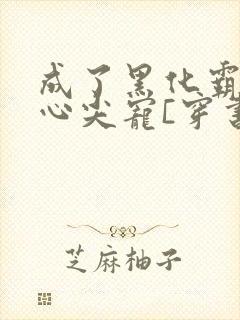 成了黑化霸
心尖宠[穿书
芝麻柚子